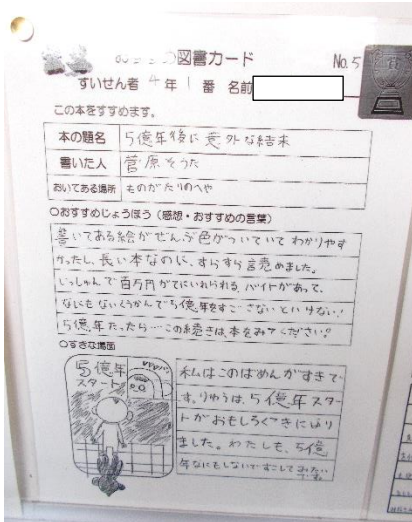 おすすめ図書カード No.5
すいせん者 4年 1番 名前
この本をすすめます。
本の題名 5億年後に意外な結末
書いた人 菅原そうた
おいてある場所 ものがたりのへや
○おすすめじょうほう（感想・おすすめの言葉）
書いてある絵がぜんぶ色がついていてわかりやす
かったし、長い本なのに、すらすら読めました。
いっしゅんで百万円がてにいれられる、バイトがあって、
なにもないくうかんで5億年をすごさないといけない!
5億年たったら…この続きは本をみてください!
○すきな場面
5億年
スタート
私はこのばめんがすきで
す。りゆうは、5億年スター
トがおもしろくすきになり
ました。わたしも、5億
年なにもしないですごしてみたい
ですね